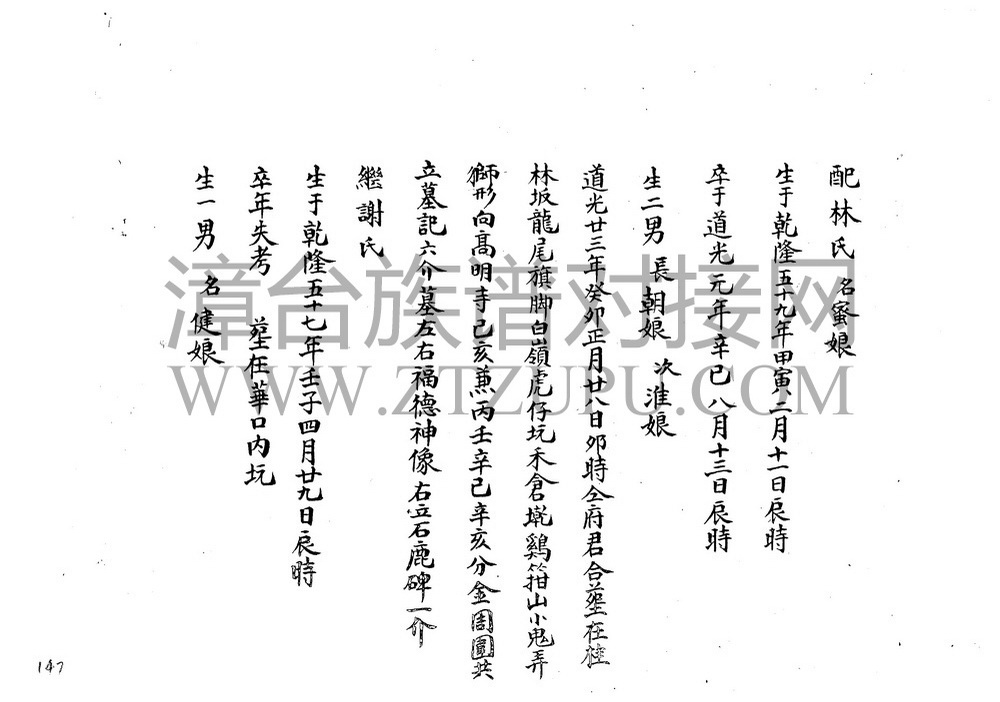 配林氏 名蜜娘
生于乾隆五十九年甲寅二月十一日辰時
卒于道光元年辛巳八月十三日辰時
生二男 長朝娘 次淮娘
道光廿三年癸卯正月廿八日卯時仝府君合塟在桂
林坂龍尾旗脚白嶺虎仔坑禾倉墘鷄箝山小鬼弄
獅形向高明寺己亥兼丙壬辛巳辛亥分金周圍共
立墓記六介墓左右福德神像右立石鹿碑一介
繼謝氏
生于乾隆五十七年壬子四月廿九日辰時
卒年失考 塟在華口内坑
生一男 名健娘
漳台族谱对接网
WWW.ZTZUPU.COM
147